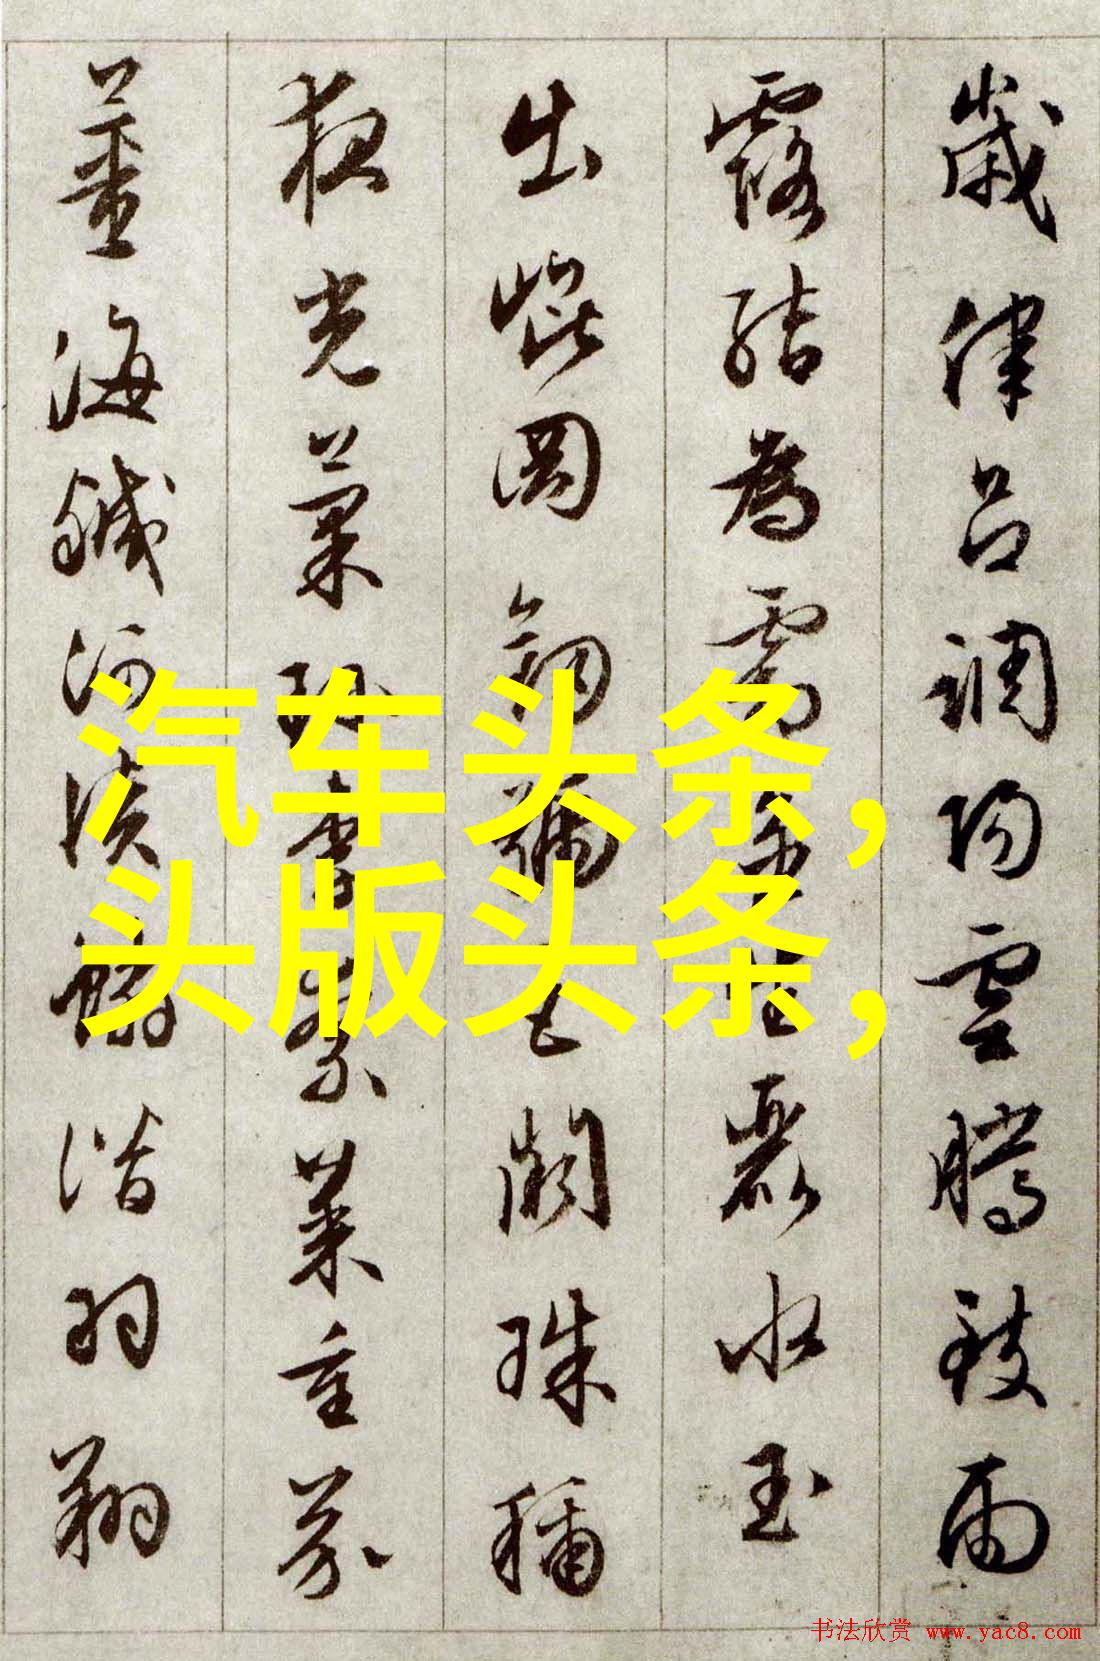 歲律呂調陽雲騰致雨
露結為霜金生麗水玉
出崐岡劍號巨闕珠稱
夜光菓珍李柰菜重芥
薑海鹹河淡鱗潛羽翔
汽车头条，
头版头条，
书法欣赏 www.yac8.com